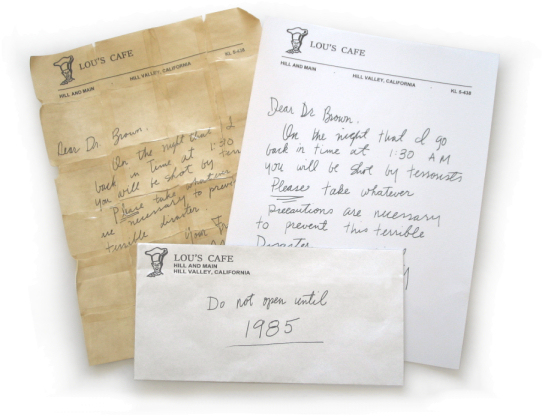 LOU'S CAFE
HILL AND MAIN
HILL VALLEY, CALIFORNIA
KL 5-438
Dear Dr. Brown.
On the night that I
back in time at 1:30
you will be shot by
Please take whatever
are necessary to prevent
terrible disaster
Your
LOU'S CAFE
HILL AND MAIN
HILL VALLEY, CALIFORNIA
KL 5-438
Dear Dr Brown.
On the night that I go
back in time at 1:30 AM
you will be shot by terrorists
Please take whatever
precautions are necessary
to prevent this terrible
Disaster
LOU'S CAFE
HILL AND MAIN
HILL VALLEY, CALIFORNIA
Do not open until
1985